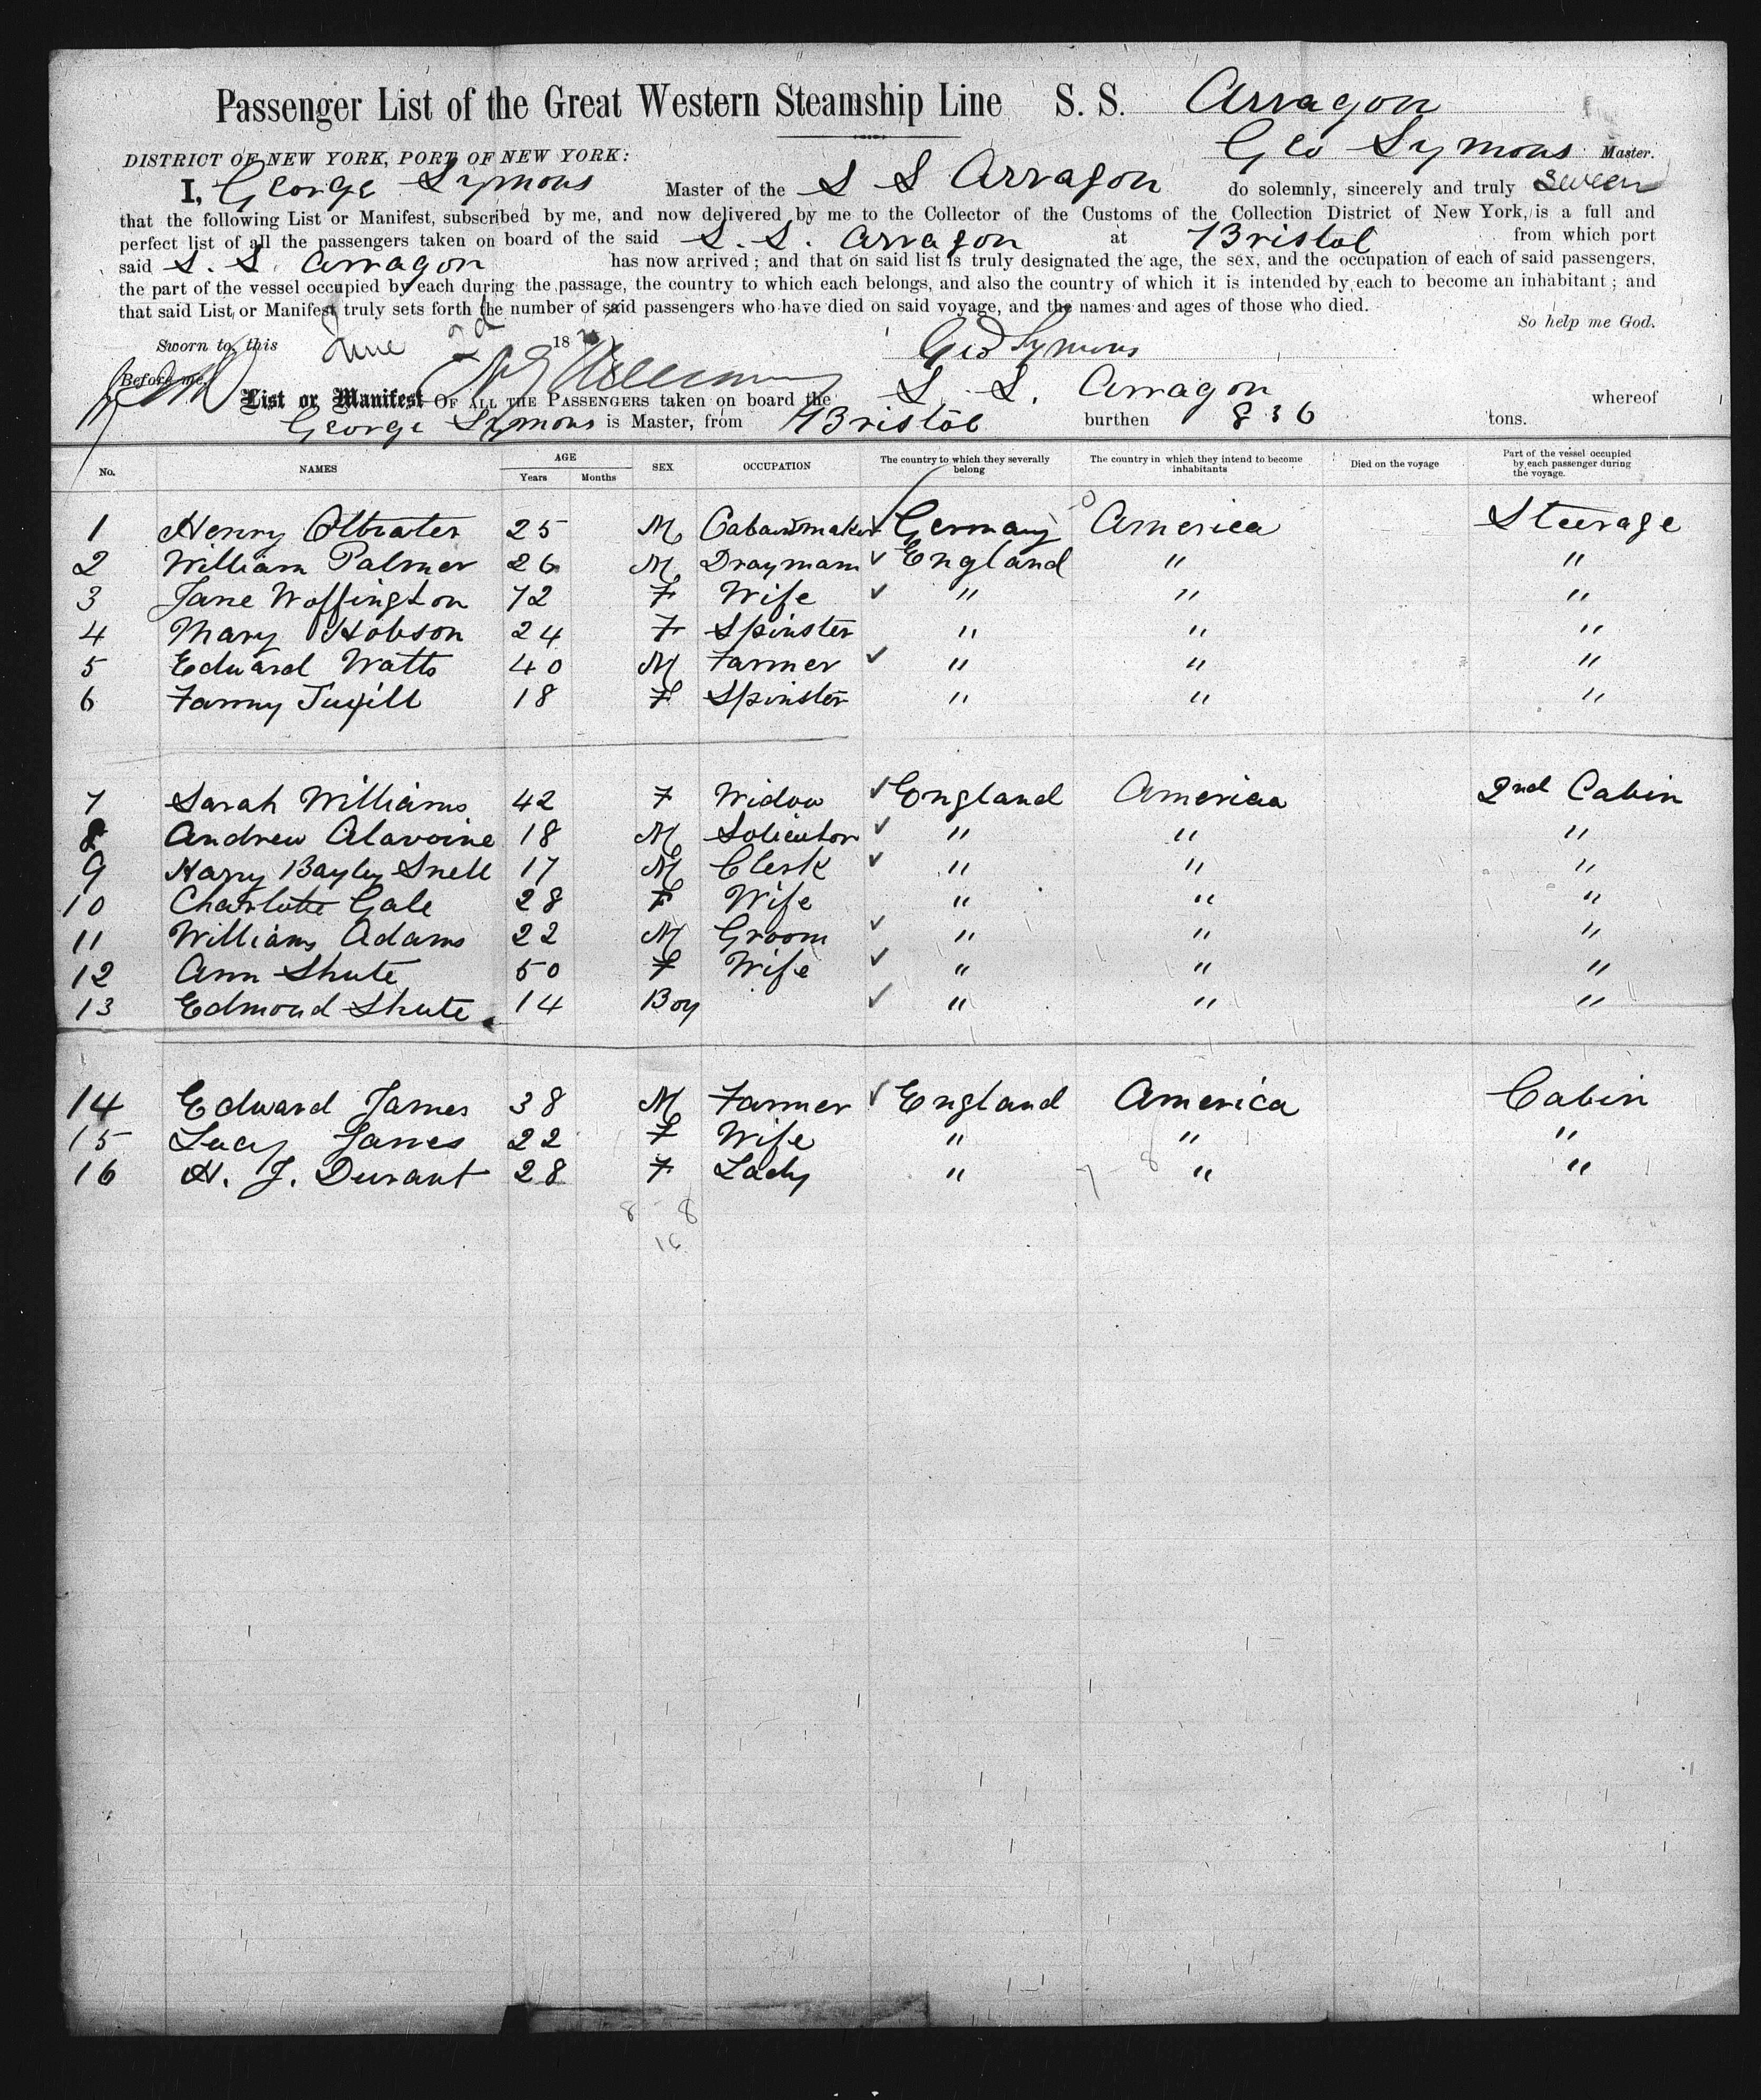 Passenger List of the Great Western Steamship Line S. S. Arragon
Geo Symons Master.
DISTRICT OF NEW YORK, PORT OF NEW YORK:
I, George Symons Master of the S S Arragon do solemnly, sincerely and truly
that the following List or Manifest, subscribed by me, and now delivered by me to the Collector of the Customs of the Collection District of New York, is a full and
perfect list of all the passengers taken on board of the said S. S. Arragon at Bristol from which port
said S. S. Arragon has now arrived; and that on said list is truly designated the age, the sex, and the occupation of each of said passengers,
the part of the vessel occupied by each during the passage, the country to which each belongs, and also the country of which it is intended by each to become an inhabitant; and
that said List or Manifest truly sets forth the number of said passengers who have died on said voyage, and the names and ages of those who died.
So help me God.
Sworn to this June 2d 18
Geo Symons
Before me,
List or Manifest OF ALL THE PASSENGERS taken on board the S. S. Arragon whereof
George Symons is Master, from Bristol burthen 836 tons.
No. NAMES AGE Years Months SEX OCCUPATION The country to which they severally belong The country in which they intend to become inhabitants Died on the voyage Part of the vessel occupied by each passenger during the voyage.
1 Henry 25 M Germany America Steerage
2 William Palmer 26 M Drayman ✓ England " "
3 Jane Woffington 72 F Wife ✓ " " "
4 Mary Hobson 24 F Spinster " " "
5 Edward Watts 40 M Farmer ✓ " " "
6 Fanny 18 F Spinster " " "
7 Sarah Williams 42 F Widow ✓ England America 2nd Cabin
8 Andrew Alavoine 18 M Solicitor ✓ " " "
9 Harry Bayley Snell 17 M Clerk ✓ " " "
10 Charlotte Gale 28 F Wife " " "
11 Williams Adams 22 M Groom ✓ " " "
12 Ann Shute 50 F Wife ✓ " " "
13 Edmond Shute 14 Boy ✓ " " "
14 Edward James 38 M Farmer ✓ England America Cabin
15 Lucy James 22 F Wife " " "
16 H. J. Durant 28 F Lady " " "
7 - 8
8 - 8
16